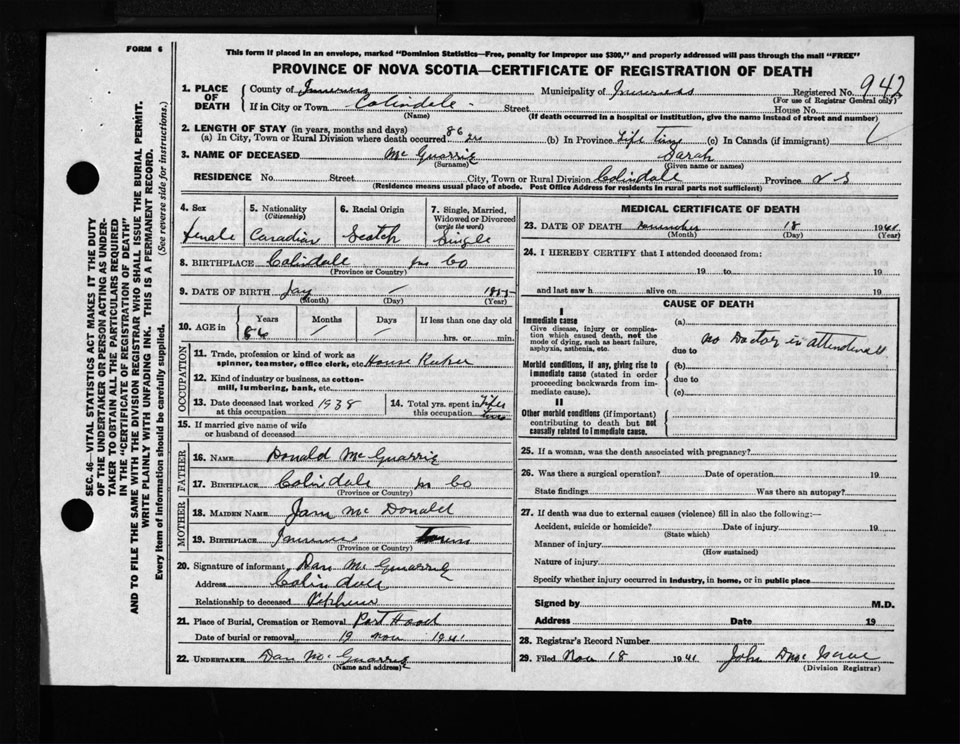 FORM 6
This form if placed in an envelope, marked "Dominion Statistics—Free, penalty for improper use $300," and properly addressed will pass through the mail "FREE"
PROVINCE OF NOVA SCOTIA—CERTIFICATE OF REGISTRATION OF DEATH
1. PLACE OF DEATH
County of Inverness Municipality of Inverness Registered No. 942
(For use of Registrar General only)
If in City or Town Colindale Street House No.
(Name) (If death occurred in a hospital or institution, give the name instead of street and number)
2. LENGTH OF STAY (in years, months and days)
(a) In City, Town or Rural Division where death occurred 86 yrs (b) In Province Life time (c) In Canada (if immigrant)
3. NAME OF DECEASED Mc Quarrie Sarah
(Surname) (Given name or names)
RESIDENCE No. Street City, Town or Rural Division Colindale Province N S
(Residence means usual place of abode. Post Office Address for residents in rural parts not sufficient)
4. Sex
Female
5. Nationality
(Citizenship)
Canadian
6. Racial Origin
Scotch
7. Single, Married, Widowed or Divorced
(write the word)
Single
8. BIRTHPLACE Colindale Co
(Province or Country)
9. DATE OF BIRTH
(Month) (Day) (Year)
10. AGE in
Years Months Days If less than one day old
86 / / hrs. or min.
OCCUPATION
11. Trade, profession or kind of work as
spinner, teamster, office clerk, etc. House Keeper
12. Kind of industry or business, as cotton-
mill, lumbering, bank, etc.
13. Date deceased last worked
at this occupation 1938
14. Total yrs. spent in
this occupation Life time
15. If married give name of wife
or husband of deceased
FATHER
16. NAME Donald Mc Quarrie
17. BIRTHPLACE Colindale Co
(Province or Country)
MOTHER
18. MAIDEN NAME Mc Donald
19. BIRTHPLACE
(Province or Country)
20. Signature of informant Dan Mc Quarrie
Address Colindale
Relationship to deceased Nephew
21. Place of Burial, Cremation or Removal Port Hood
Date of burial or removal 19 Nov 1941
22. UNDERTAKER Dan Mc Quarrie
(Name and address)
MEDICAL CERTIFICATE OF DEATH
23. DATE OF DEATH 18 1941
(Month) (Day) (Year)
24. I HEREBY CERTIFY that I attended deceased from:
19 to 19
and last saw h alive on 19
CAUSE OF DEATH
I
Immediate cause
Give disease, injury or complica-
tion which caused death, not the
mode of dying, such as heart failure,
asphyxia, asthenia, etc.
(a)
No Doctor in attendance
due to
Morbid conditions, if any, giving rise to
immediate cause (stated in order
proceeding backwards from im-
mediate cause).
(b)
due to
(c)
II
Other morbid conditions (if important)
contributing to death but not
causally related to immediate cause.
25. If a woman, was the death associated with pregnancy?
26. Was there a surgical operation? Date of operation 19
State findings Was there an autopsy?
27. If death was due to external causes (violence) fill in also the following:—
Accident, suicide or homicide? Date of injury 19
(State which)
Manner of injury
(How sustained)
Nature of injury
Specify whether injury occurred in industry, in home, or in public place
Signed by M.D.
Address Date 19
28. Registrar's Record Number
29. Filed Nov 18 1941 John
(Division Registrar)
SEC. 46—VITAL STATISTICS ACT MAKES IT THE DUTY
OF THE UNDERTAKER OR PERSON ACTING AS UNDER-
TAKER TO OBTAIN ALL THE PARTICULARS REQUIRED
IN THE "CERTIFICATE OF REGISTRATION OF DEATH"
AND TO FILE THE SAME WITH THE DIVISION REGISTRAR WHO SHALL ISSUE THE BURIAL PERMIT.
WRITE PLAINLY WITH UNFADING INK. THIS IS A PERMANENT RECORD.
Every item of information should be carefully supplied. (See reverse side for instructions.)